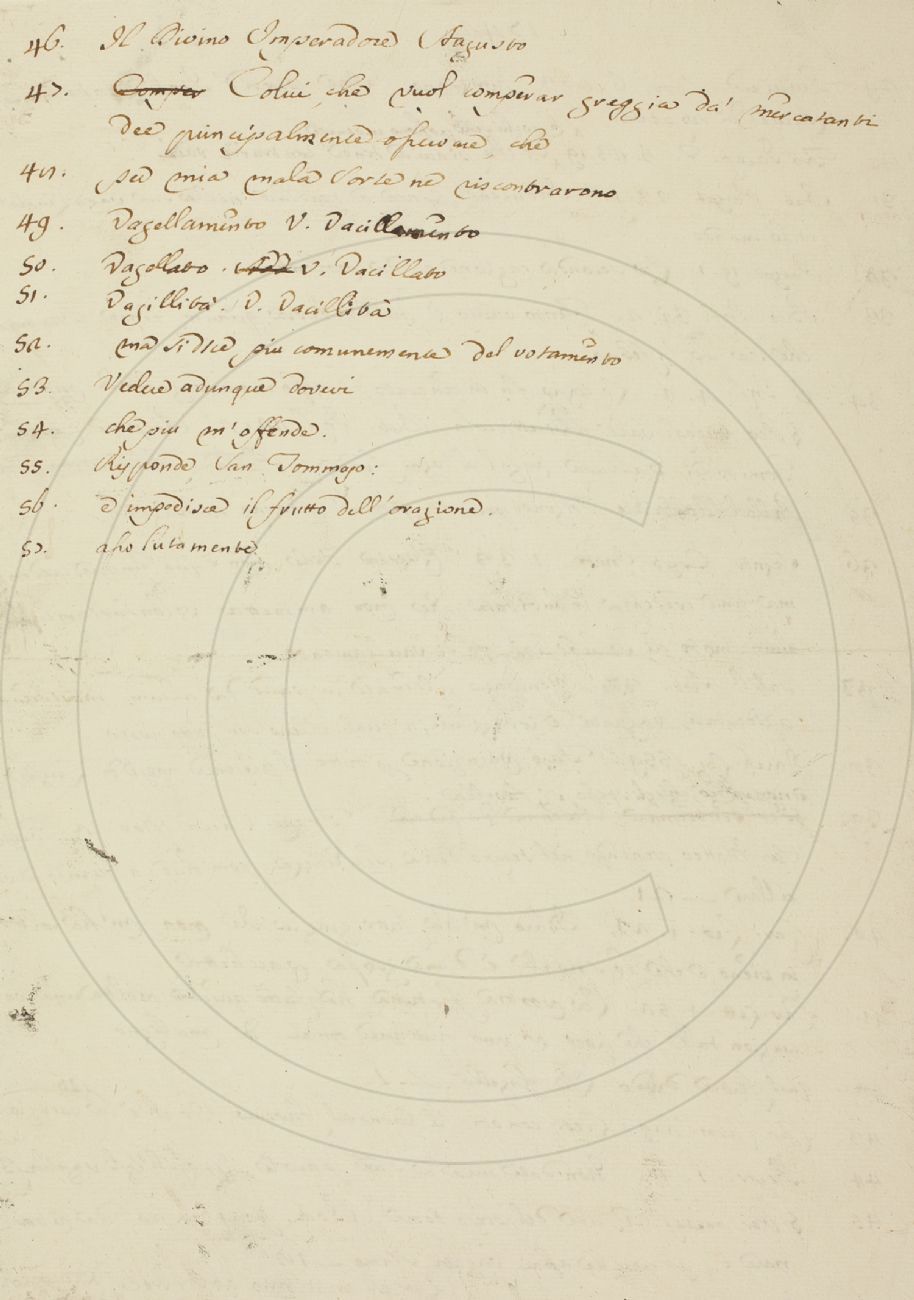 46. Il Divino Imperadore Augusto
47. Comper Colui, che vuol comperar greggia da' mercatanti
dee principalmente osservare, che
48. per mia mala sorte ne riscontrarono
49. Vagellamento V. Vacillamento
50. Vagellato. V. Vacillato
51. Vagillità. V. Vacillità
52. ma si dice piu comunemente del votamento
53. Vedere adunque dovevi
54. che piu m'offende.
55. Risponde San Tommaso:
56. e impedisce il frutto dell'orazione.
57. assolutamente